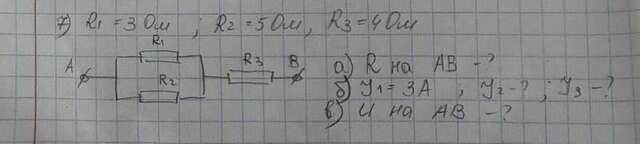 7) R1 = 3 Ом ; R2 = 5 Ом, R3 = 4 Ом
R1
A
R3
B
R2
а) R на AB - ?
б) У1 = 3А ; У2 - ? ; У3 - ?
в) U на AB - ?